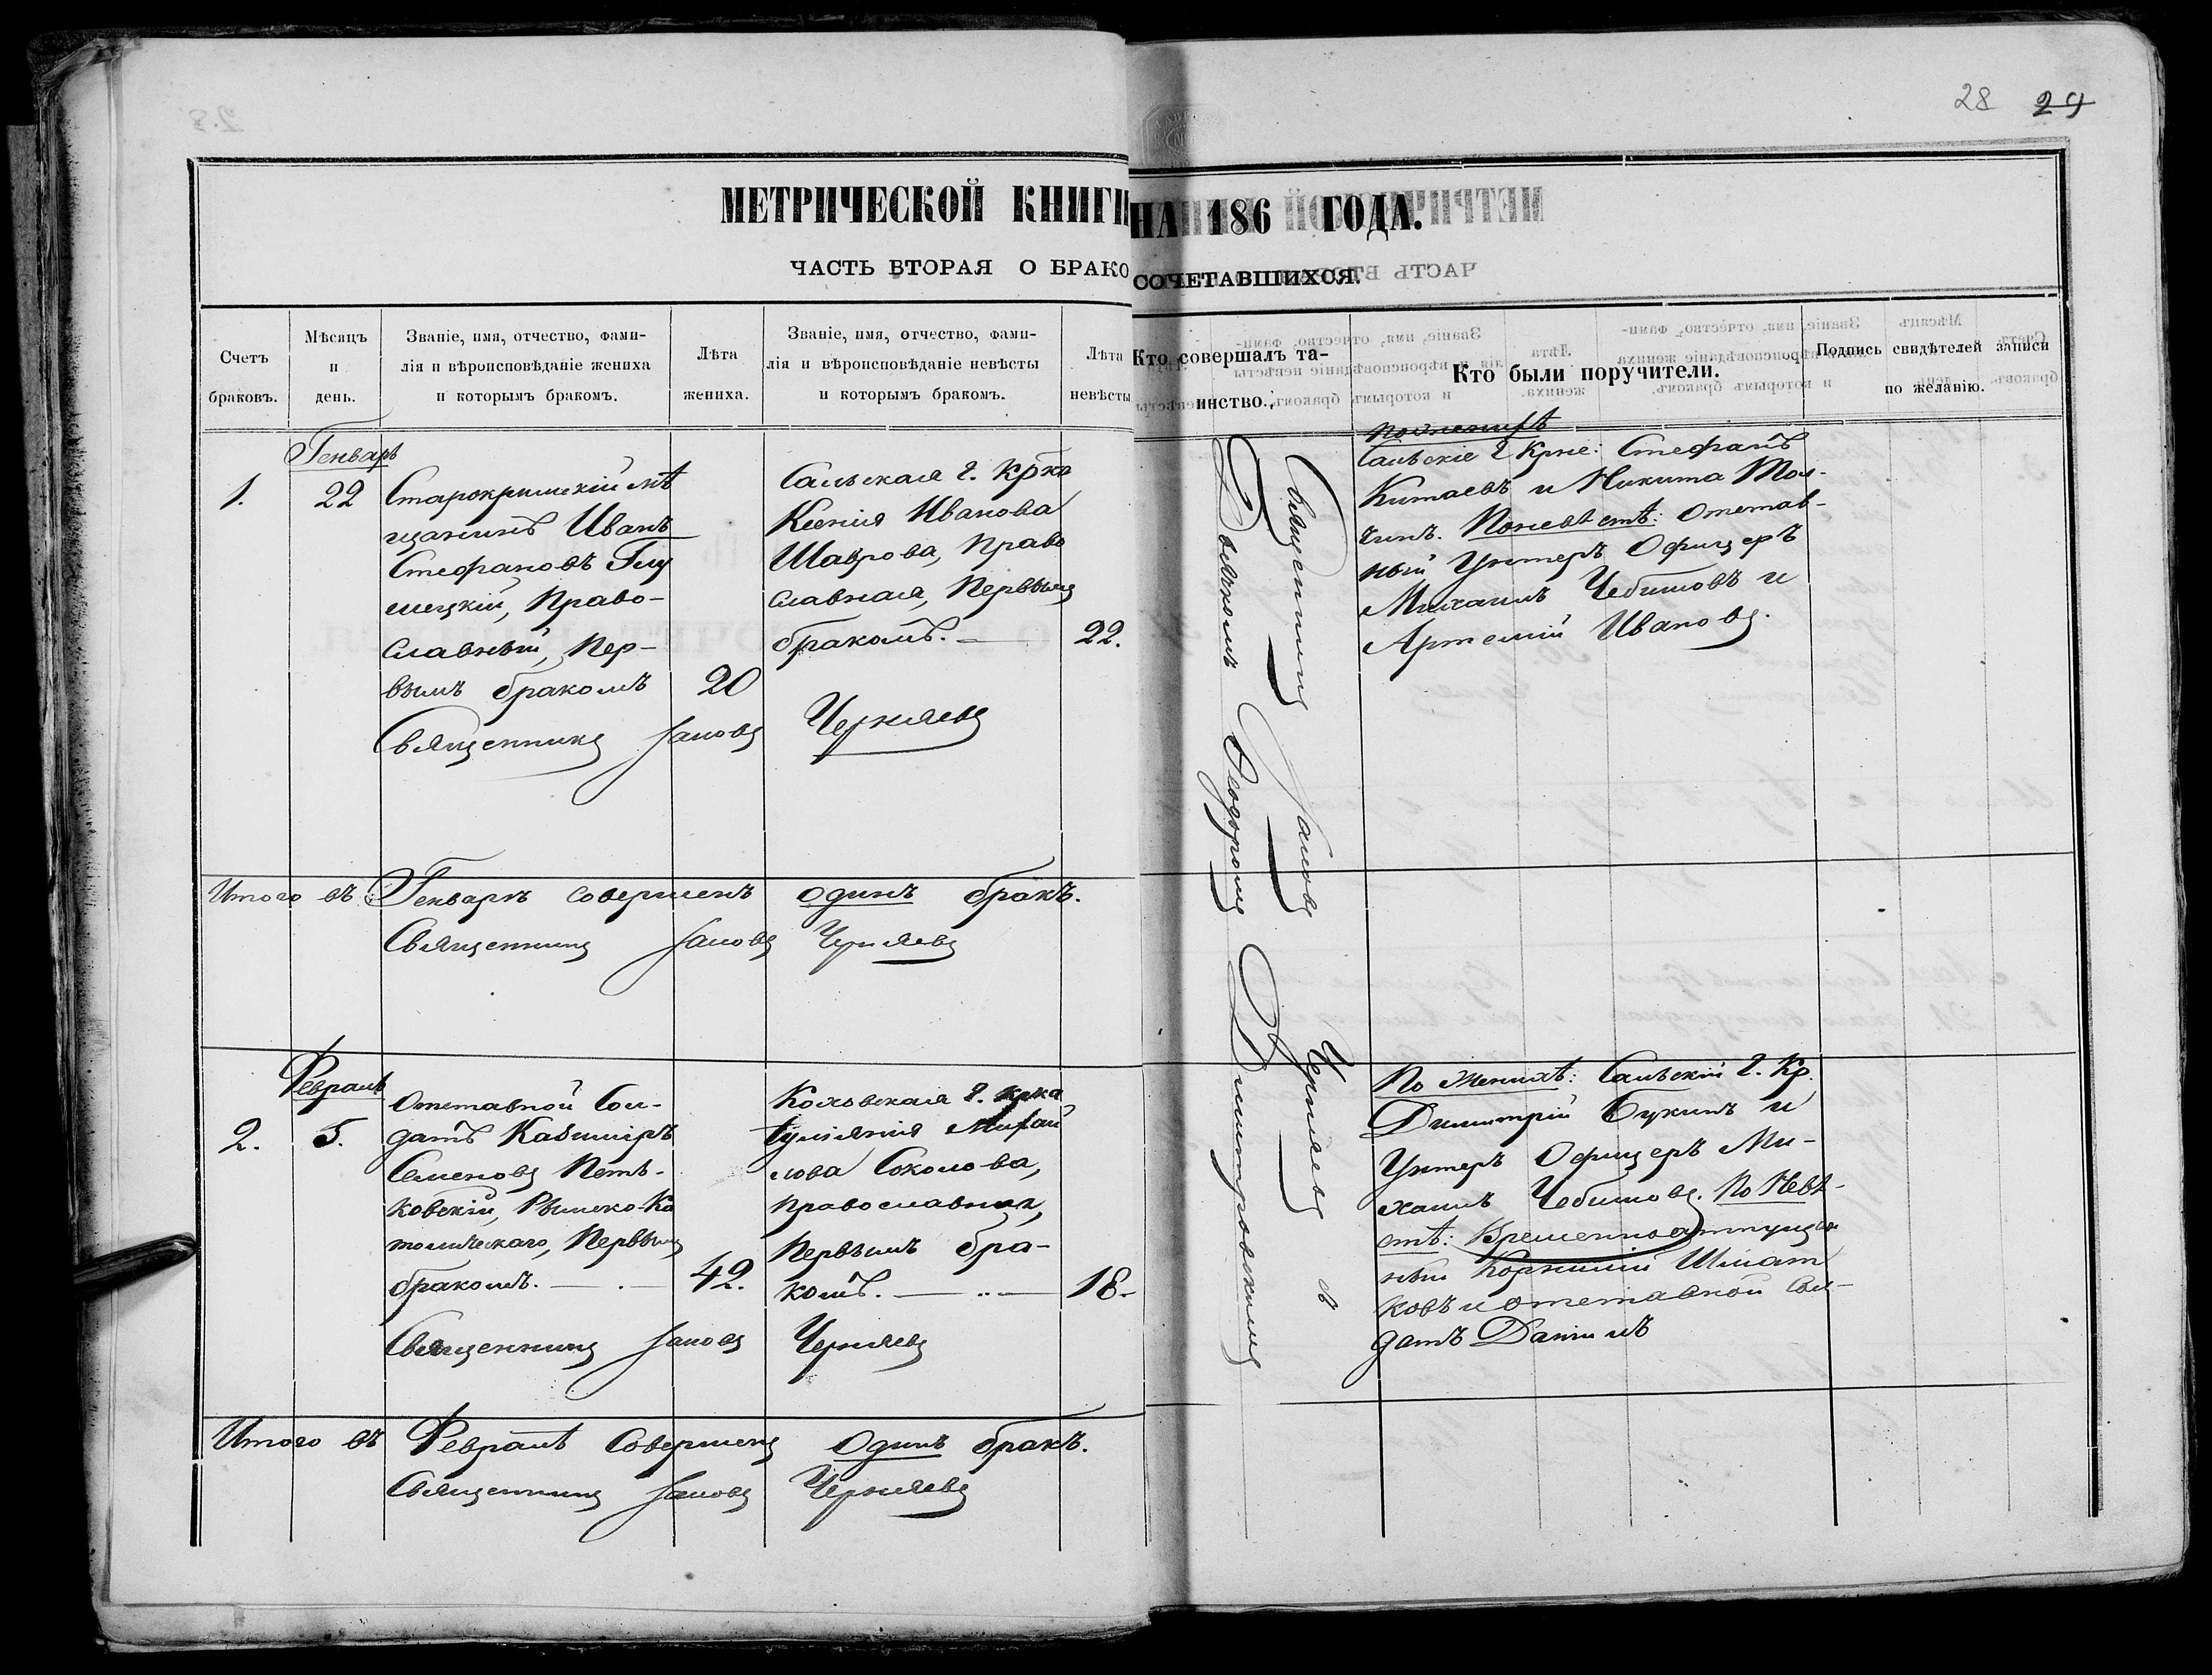 28 29
МЕТРИЧЕСКОЙ КНИГИ НА 186 ГОДА.
ЧАСТЬ ВТОРАЯ О БРАКОСОЧЕТАВШИХСЯ.
Счетъ браковъ.
Мѣсяцъ и день.
Званіе, имя, отчество, фами-
лія и вѣроисповѣданіе жениха
и которымъ бракомъ.
Лѣта жениха.
Званіе, имя, отчество, фами-
лія и вѣроисповѣданіе невѣсты
и которымъ бракомъ.
Лѣта невѣсты
Кто совершалъ та-
инство.
Кто были поручители.
Подпись свидѣтелей записи
по желанію.
Генварь
1.
22
Старокрымскій мѣ
щанинъ Иванъ
Стефановъ
Право-
славный, Пер-
вымъ бракомъ
20
Ксенія Иванова
Шаврова, Право
славная, Первымъ
бракомъ.
22.
Священникъ Іаковъ Черняевъ
Священникъ Іаковъ Черняевъ съ
Дьякономъ Ѳеодоромъ Димитровскимъ
По женихѣ
Стефанъ
Китаевъ и Никита
чинъ. По невѣстѣ: отстав-
ный Унтеръ Офицеръ
Михаилъ Чебышовъ и
Артемій Ивановъ.
Итого въ Генварѣ совершенъ одинъ бракъ.
Священникъ Іаковъ Черняевъ
Февраль
2.
5.
Отставной Сол-
датъ Казиміръ
Семеновъ Петь-
ковскій, Римско-Ка
толическаго, Первымъ
бракомъ.
42.
Іуліянія Михаи
лова Соколова,
православная,
Первымъ бра-
комъ.
18.
Священникъ Іаковъ Черняевъ
По женихѣ:
Димитрій Букинъ и
Унтеръ Офицеръ Ми-
хаилъ Чебышовъ. По Невѣ-
стѣ: Временно отпущен
ный Корнилій Шмат
ковъ и отставной Сол-
датъ Даніилъ
Итого въ Февралѣ совершенъ одинъ бракъ.
Священникъ Іаковъ Черняевъ